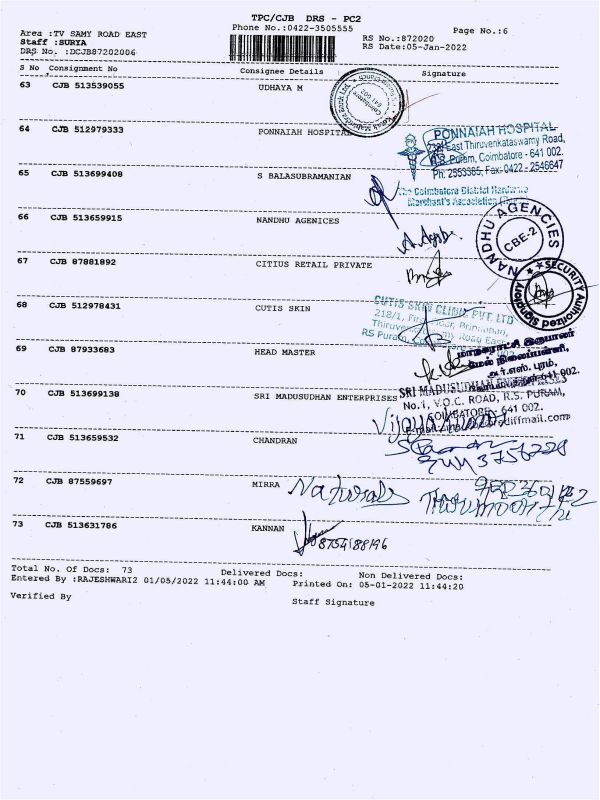 TPC/CJB DRS - PC2
Phone No.:0422-3505555
Page No.:6
Area :TV SAMY ROAD EAST
Staff :SURYA
DRS No. :DCJB87202006
RS No.:872020
RS Date:05-Jan-2022
S No Consignment No Consignee Details Signature
63 CJB 513539055 UDHAYA M
64 CJB 512979333 PONNAIAH HOSPITAL
PONNAIAH HOSPITAL
East Thiruvenkataswamy Road,
R.S. Puram, Coimbatore - 641 002.
Ph: 2553365, Fax: 0422 - 2546647
65 CJB 513699408 S BALASUBRAMANIAN
The Coimbatore District Hardware
Merchant's Association
66 CJB 513659915 NANDHU AGENICES
NANDHU AGENCIES
CBE-2
67 CJB 87881892 CITIUS RETAIL PRIVATE
SECURITY Authorized
68 CJB 512978431 CUTIS SKIN
CUTIS SKIN CLINIC PVT. LTD
218/1, First Floor,
RS Puram,
69 CJB 87933683 HEAD MASTER
ஆர்.எஸ். புரம்,
641 002.
70 CJB 513699138 SRI MADUSUDHAN ENTERPRISES
SRI MADUSUDHAN ENTERPRISES
No.1, V.O.C. ROAD, R.S. PURAM,
COIMBATORE - 641 002.
71 CJB 513659532 CHANDRAN
72 CJB 87559697 MIRRA
Naturals
73 CJB 513631786 KANNAN
8754188196
Total No. Of Docs: 73 Delivered Docs: Non Delivered Docs:
Entered By :RAJESHWARI2 01/05/2022 11:44:00 AM Printed On: 05-01-2022 11:44:20
Verified By Staff Signature